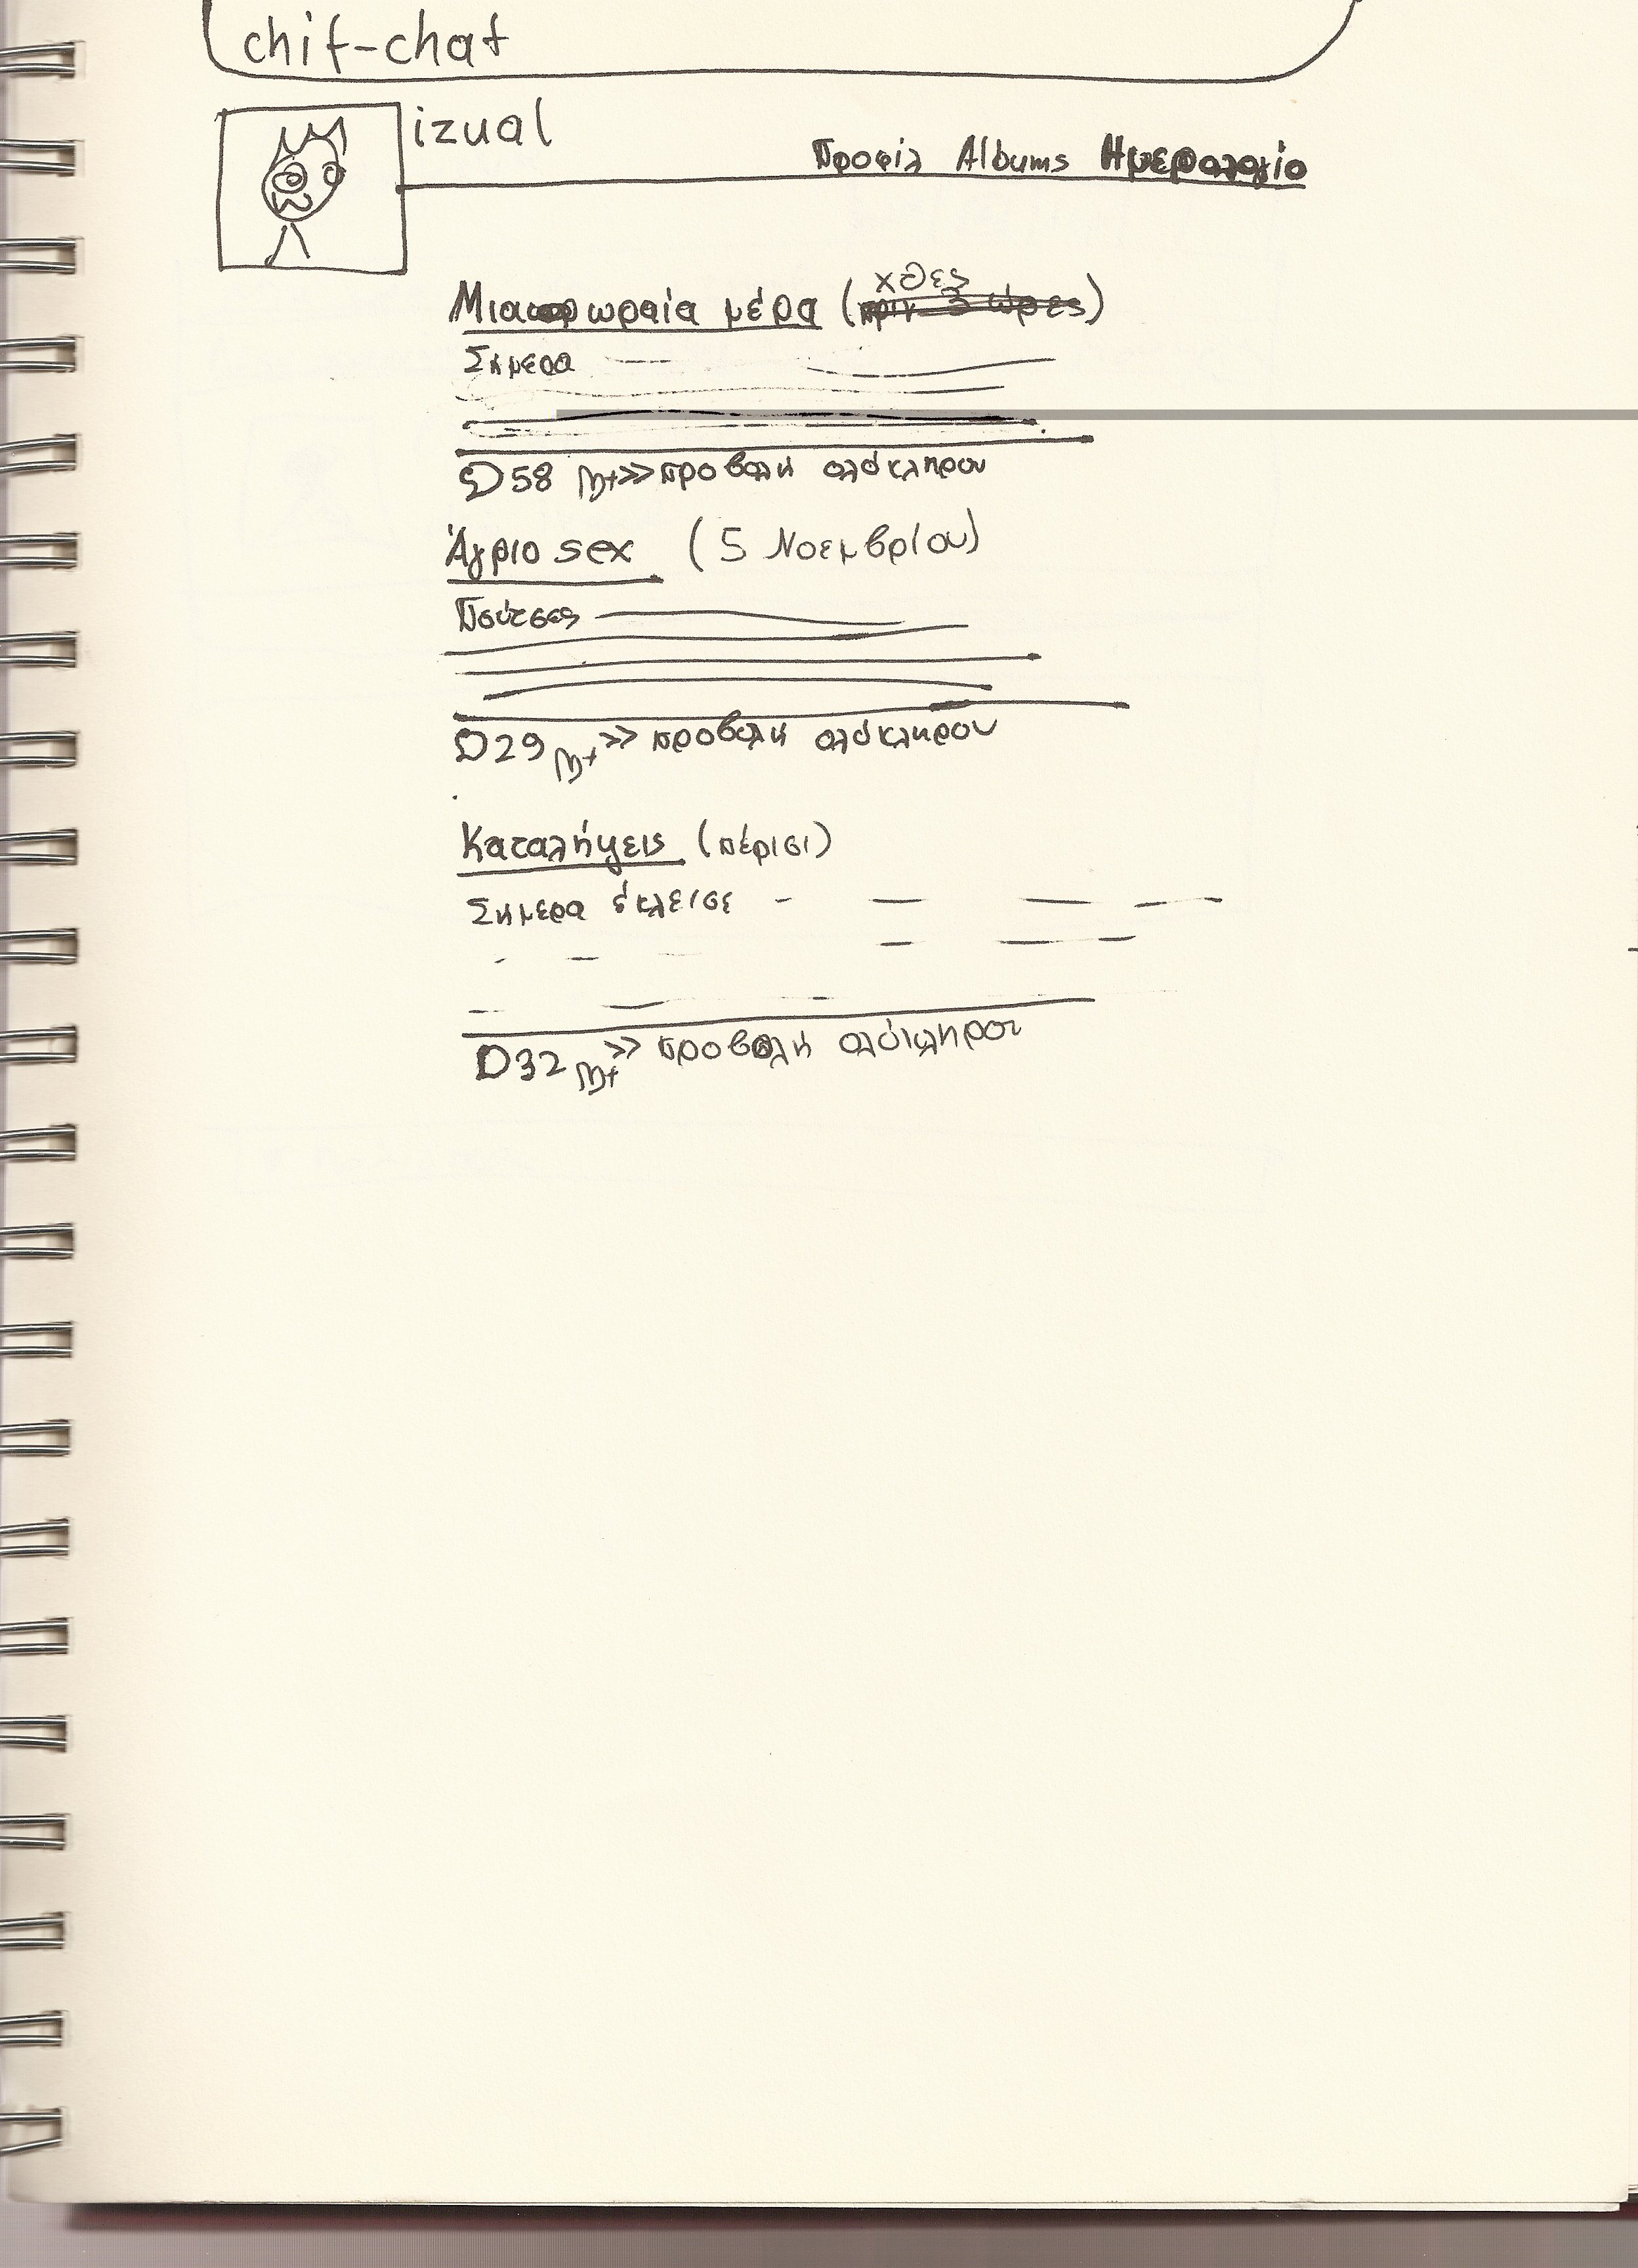 chit-chat
izual
Προφίλ Albums Ημερολόγιο
χθες
Μια ωραία μέρα (πριν 3 ώρες)
Σήμερα
58 >> προβολή ολόκληρου
Άγριο sex (5 Νοεμβρίου)
Πούτσες
29 >> προβολή ολόκληρου
Καταλήψεις (πέρισι)
Σήμερα έκλεισε
32 >> προβολή ολόκληρου